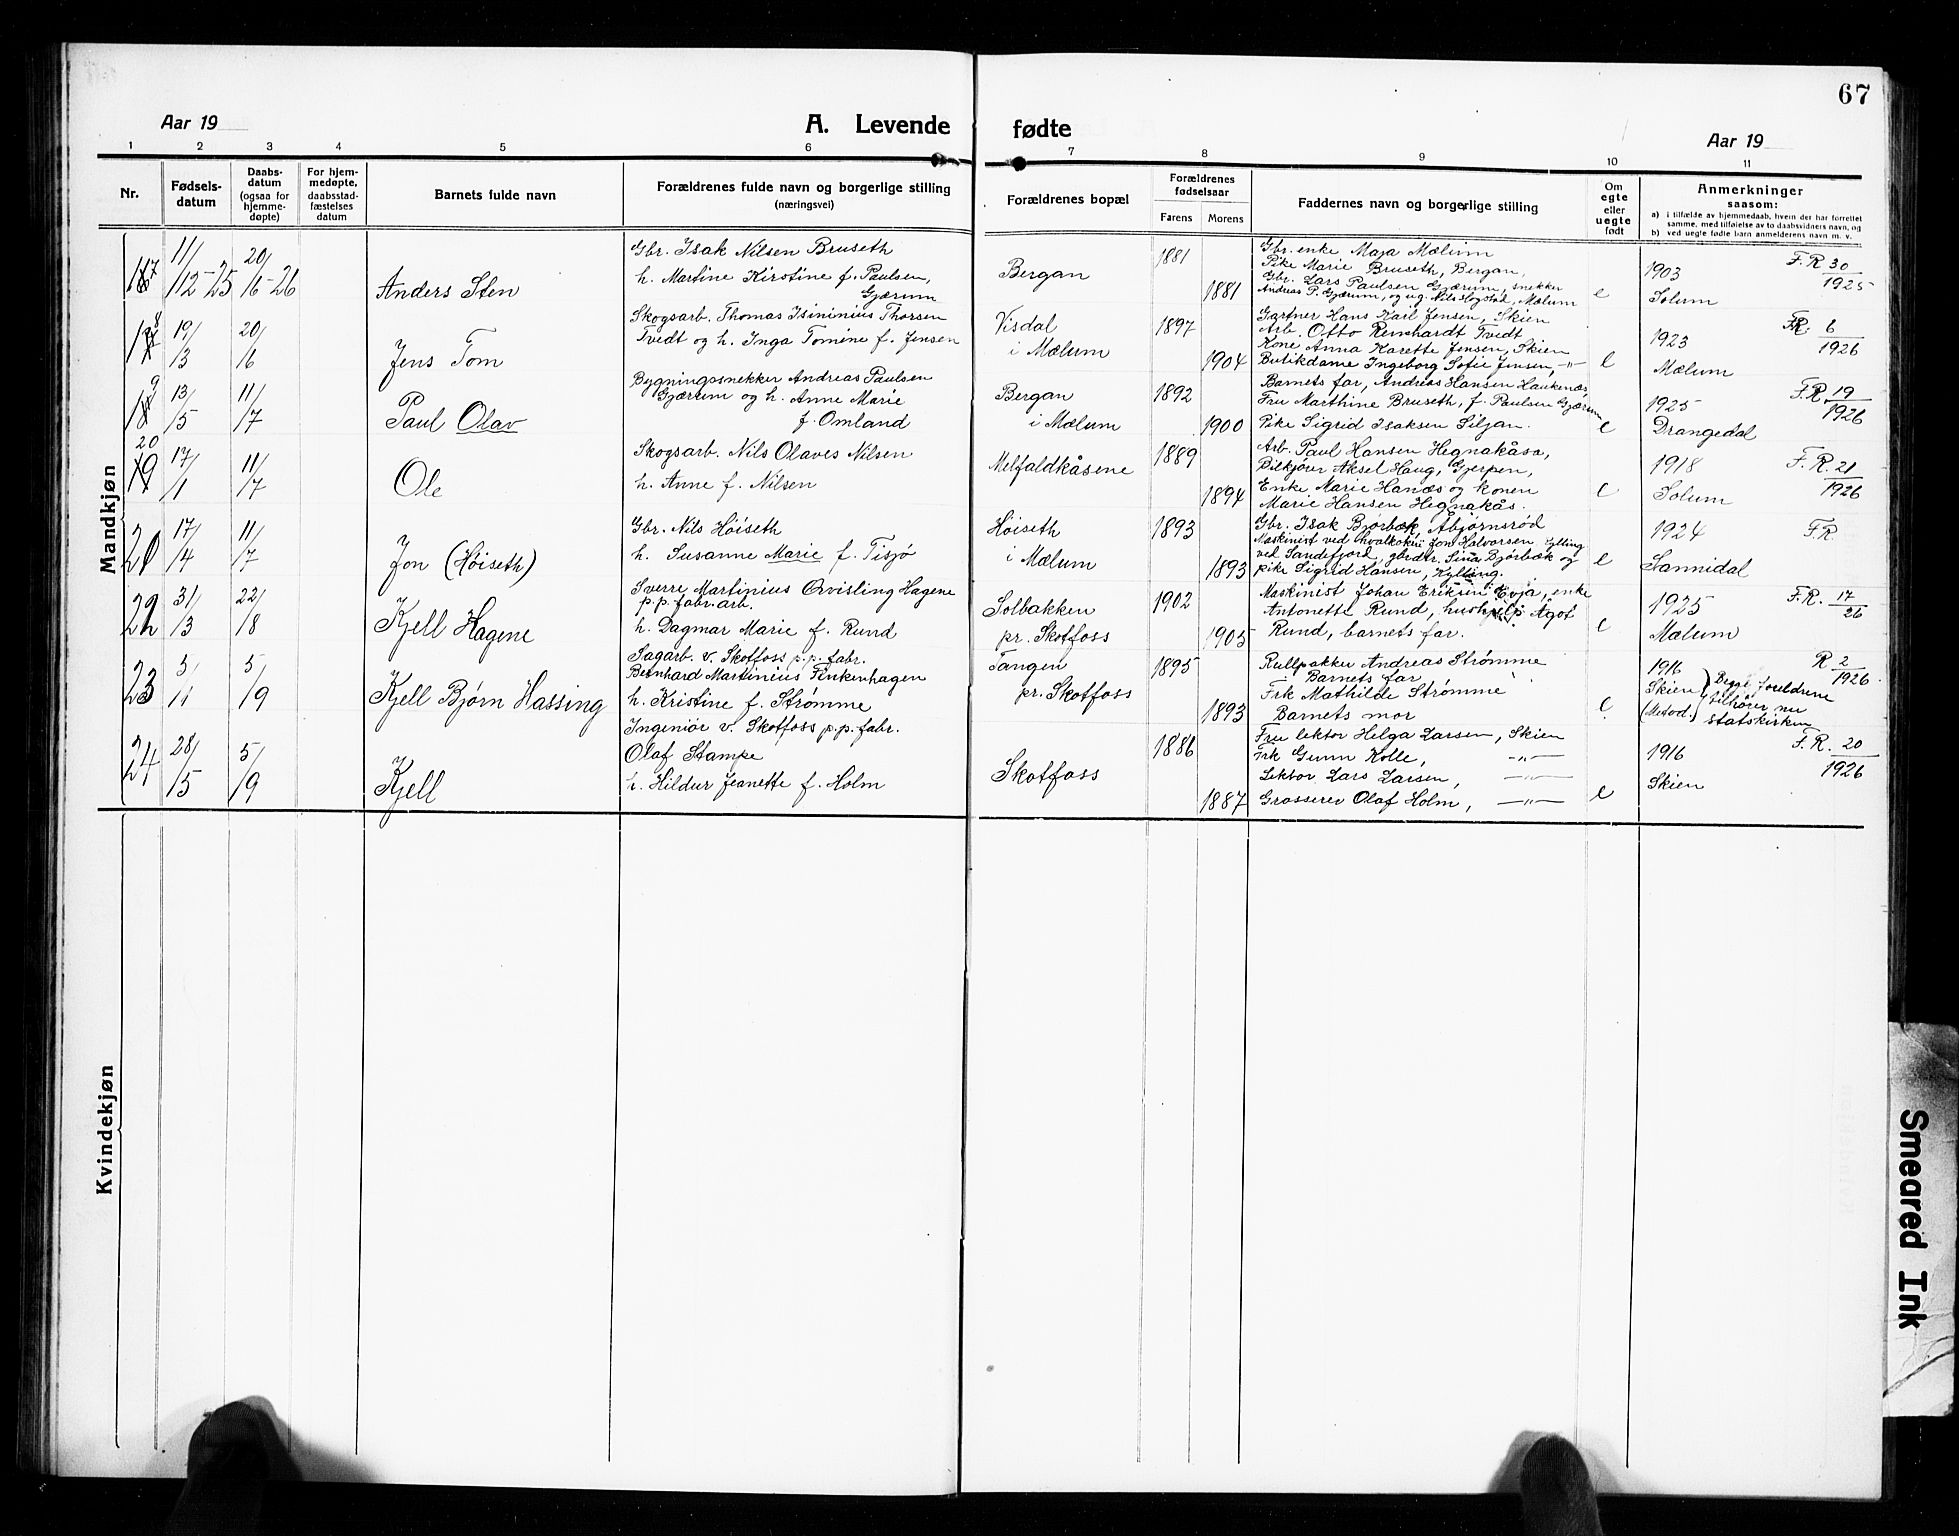 67
Aar 19
A. Levende
fødte
Aar 19
1 2 3 4 5 6 7 8 9 10 11
Nr.
Fødsels-
datum
Daabs-
datum
(ogsaa for
hjemme-
døpte)
For hjem-
medøpte,
daabsstad-
fæstelses
datum
Barnets fulde navn
Forældrenes fulde navn og borgerlige stilling
(næringsvei)
Forældrenes bopæl
Forældrenes
fødselsaar
Farens Morens
Faddernes navn og borgerlige stilling
Om
egte
eller
uegte
født
Anmerkninger
saasom:
a) i tilfælde av hjemmedaab, hvem der har forrettet
samme, med tilføielse av to daabsvidners navn, og
b) ved uegte fødte barn anmelderens navn m. v.
Mandkjøn
17
11/12-25
20/6-26
Anders Sten
Gbr. Isak Nilsen Bruseth
h. Martine Kirstine f. Paulsen,
Gjærum
Bergan
1881
1881
Gbr. enke Maja Mælum
Pike Marie Bruseth, Bergan,
Gbr. Lars Paulsen Gjærum, snekker
Andreas P. Gjærum, og u.g. Nils Hogstad, Mælum
e
1903
Solum
F.R. 30/1925
18
19/3
20/6
Jens Tom
Skogsarb. Thomas Isininius Thorsen
Tvedt og h. Inga Tomine f. Jensen
Visdal
i Mælum
1897
1904
Gartner Hans Karl Jensen, Skien
Arb. Otto Reinhardt Tvedt
Kone Anna Karette Jensen, Skien
Butikdame Ingeborg Sofie Jensen, -"-
e
1923
Mælum
F.R. 6/1926
19
13/5
11/7
Paul Olav
Bygningssnekker Andreas Paulsen
Gjærum og h. Anne Marie
f. Omland
Bergan
i Mælum
1892
1900
Barnets far, Andreas Hansen Haukenæs,
Fru Marthine Bruseth, f. Paulsen Gjærum
Pike Sigrid Isaksen Siljan.
e
1925
Drangedal
F.R. 19/1926
20
17/1
11/7
Ole
Skogsarb. Nils Olaves Nilsen
h. Anne f. Nilsen
Melfaldkåsene
1889
1894
Arb. Paul Hansen Hegnakåsa,
Bilkjører Aksel Haug, Gjerpen,
Enke Marie Hanæs og konen
Marie Hansen Hegnakås.
e
1918
Solum
F.R. 21/1926
21
17/4
11/7
Jon (Høiseth)
Gbr. Nils Høiseth
h. Susanne Marie f. Tisjø
Høiseth
i Mælum
1893
1893
Gbr. Isak Bjorbæk, Åbjørnsrød
Maskinist ved hvalkokeri Jon Halvorsen Kylling
ved Sandefjord, gbrdtr. Sina Bjørbæk og
pike Sigrid Hansen, Kylling.
e
1924
Sannidal
F.R
22
31/3
22/8
Kjell Hagene
Sverre Martinius Qrvisling Hagene
p.p. fabr. arb.
h. Dagmar Marie f. Rund
Solbakken
pr. Skotfoss
1902
1905
Maskinist Johan Eriksen Evja, enke
Antonette Rund, hushjelp Ågot
Rund, barnets far.
e
1925
Mælum
F.R. 17/26
23
5/9
Kjell Bjørn Hassing
Sagarb. v. Skotfoss p.p. fabr.
Bernhard Martinius Finkenhagen
h. Kristine f. Strømme
Tangen
pr. Skotfoss
1895
1893
Rullpakker Andreas Strømme
Barnets far
Frk Mathilde Strømme
Barnets mor
e
1916
Skien
(Metod.)
Begge foreldrene
tilhører nu
statskirken
R 2/1926
24
28/5
5/9
Kjell
Ingeniør v. Skotfoss p.p. fabr.
Olaf Stampe
h. Hildur Jeanette f. Holm
Skotfoss
1886
1887
Fru lektor Helga Larsen, Skien
Frk Gunn Kolle, -"-
Lektor Lars Larsen, -"-
Grosserer Olaf Holm, -"-
e
1916
Skien
F.R. 20/1926
Kvindekjøn
Smeared Ink